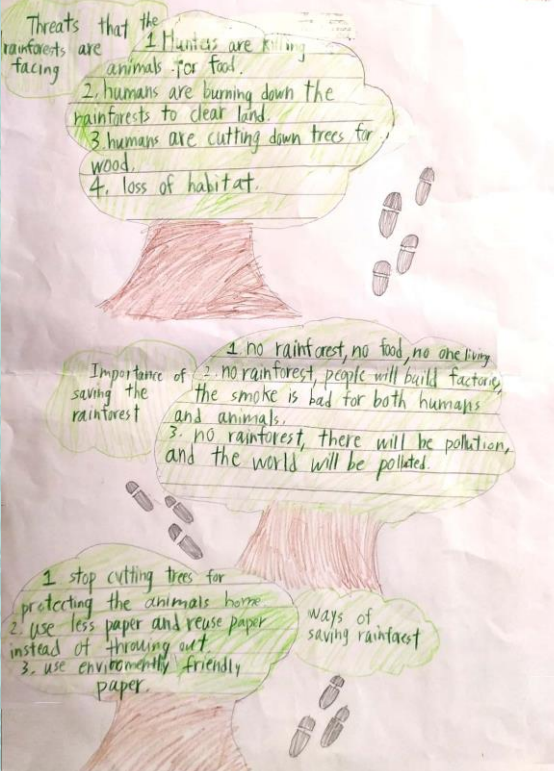 Threats that the
rainforests are
facing
1 Hunters are killing
animals for food.
2. humans are burning down the
rainforests to clear land.
3. humans are cutting down trees for
wood.
4. loss of habitat.
Importance of
saving the
rainforest
1. no rainforest, no food, no one living
2. no rainforest, people will build factories,
the smoke is bad for both humans
and animals.
3. no rainforest, there will be pollution,
and the world will be polluted.
1 stop cutting trees for
protecting the animals home.
2. use less paper and reuse paper
instead of throwing out.
3. use enviromently friendly
paper.
ways of
saving rainforest